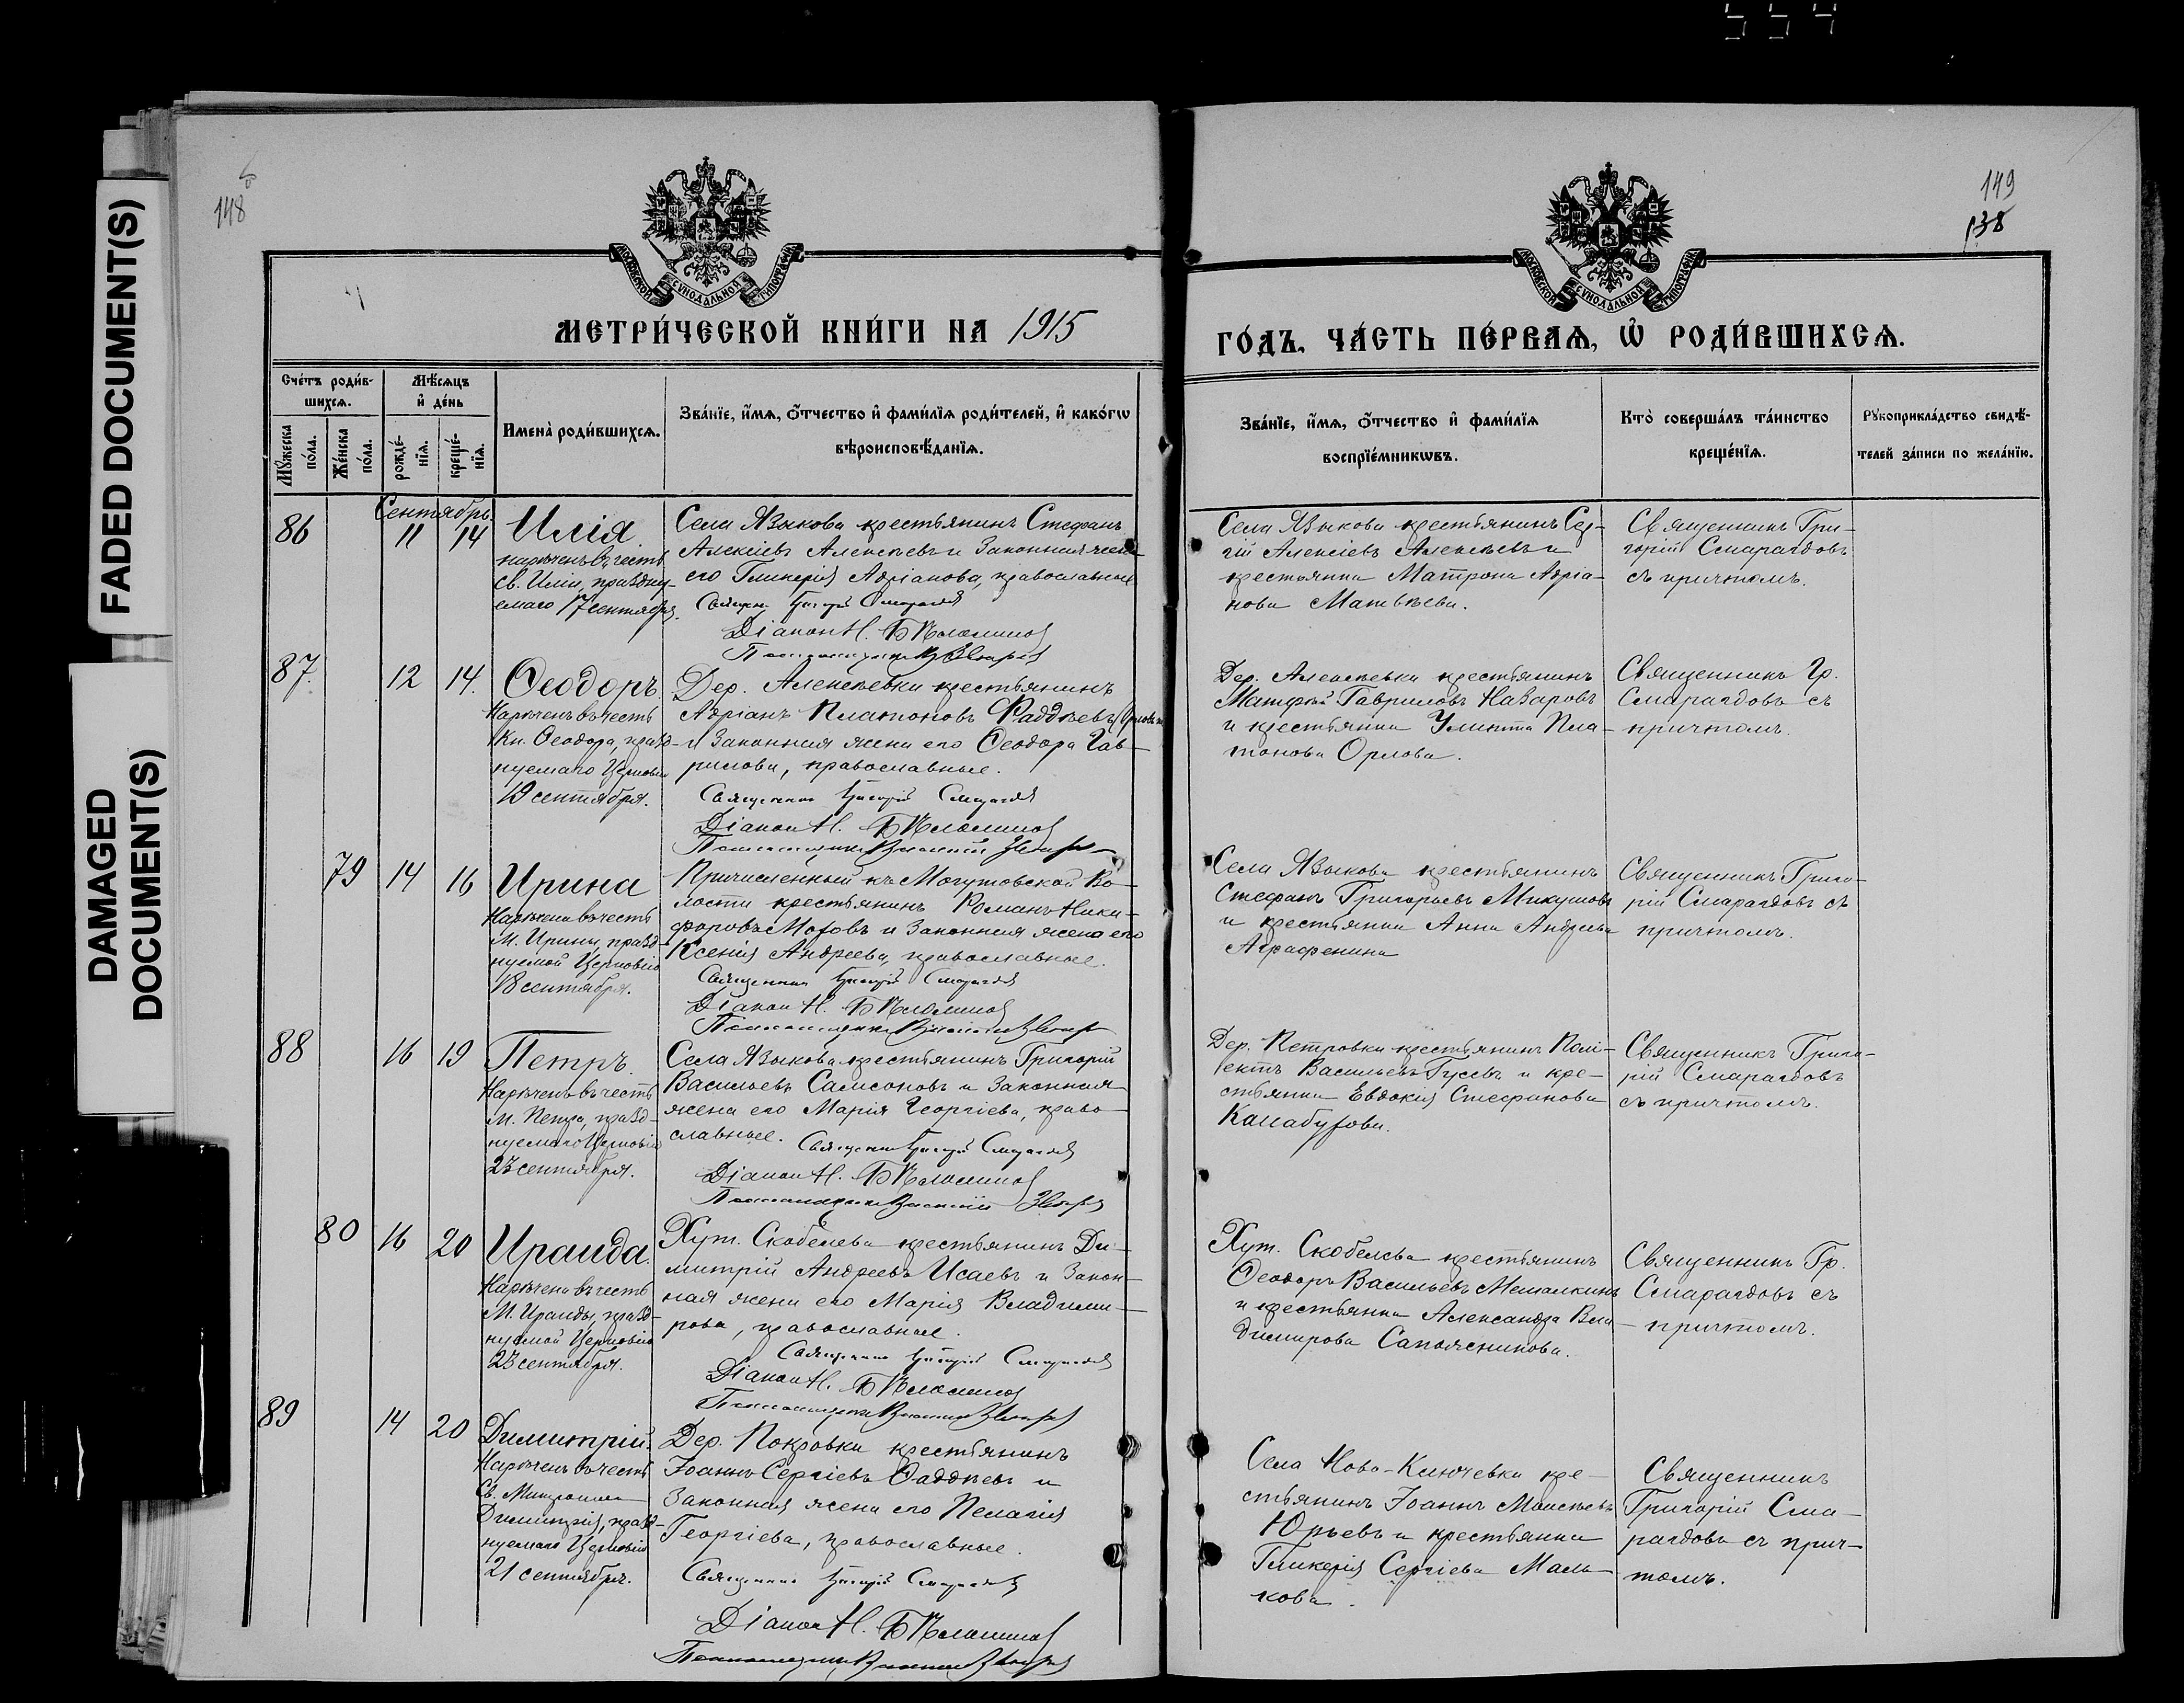 554
FADED DOCUMENT(S)
DAMAGED
DOCUMENT(S)
148
149
138
МОСКОВСКОЙ СѴНОДАЛЬНОЙ ТИПОГРАФІИ
МЕТРИ́ЧЕСКОЙ КНИ́ГИ НА 1915
Сче́тъ роди́в-
шихсѧ.
Мꙋ́жеска
по́ла.
Же́нска
по́ла.
Мѣ́сѧцъ
и҆ де́нь
рожде́-
нїѧ.
креще́-
нїѧ.
Имена̀ роди́вшихсѧ.
Зва́нїе, и҆́мѧ, ѻ҆́тчество и҆ фами́лїѧ роди́телей, и҆ како́гѡ
вѣроисповѣ́данїѧ.
Сентябрь.
86
11
14
Илія.
нареченъ въ честь
св. Иліи, праздну-
емаго 17 сентября.
Села Языкова крестьянинъ Стефанъ
Алексіевъ Алексѣевъ и законная жена
его Гликерія Адріанова, православные
Священн. Григорій Смарагдов
Діакон Н.
87.
12
14.
Ѳеодоръ.
Нареченъ въ честь
Кн. Ѳеодора, празд-
нуемаго Церковію
19 сентября.
Дер. Алексѣевки крестьянинъ
Адріанъ Платоновъ Фаддѣевъ (Орловъ)
и законная жена его Ѳеодора Гав-
рилова, православные.
Священник Григорій Смарагдов
Діакон Н.
79
14
16
Ирина
Наречена въ честь
М. Ирины, празд-
нуемой Церковію
18 сентября.
Причисленный къ Могутовской Во-
лости крестьянинъ Романъ Ники-
форовъ и законная жена его
Ксенія Андреева, православные.
Священник Григорій Смарагдов
Діакон Н.
88
16
19
Петръ.
Нареченъ въ честь
М. Петра, празд-
нуемаго Церковію
23 сентября.
Села Языкова крестьянинъ Григорій
Васильевъ Самсоновъ и законная
жена его Марія Георгіева, право-
славные.
Священник Григорій Смарагдов
Діакон Н.
80
16
20
Ираида.
Наречена въ честь
М. Ираиды, празд-
нуемой Церковію
23 сентября.
Хут. Скобелева крестьянинъ Ди-
митрій Андреевъ Исаевъ и закон-
ная жена его Марія Владими-
рова, православные.
Священник Григорій Смарагдов
Діакон Н.
89
14
20
Димитрій.
Нареченъ въ честь
Св. Митрополита
Димитрія, празд-
нуемаго Церковію
21 сентября.
Дер. Покровки крестьянинъ
Іоаннъ Сергіевъ Фаддѣевъ и
законная жена его Пелагія
Георгіева, православные.
Священник Григорій Смарагдов
Діакон Н.
МОСКОВСКОЙ СѴНОДАЛЬНОЙ ТИПОГРАФІИ
ГО́ДЪ, ЧА́СТЬ ПЕ́РВАѦ, Ѡ҆ РОДИ́ВШИХСѦ.
Зва́нїе, и҆́мѧ, ѻ҆́тчество и҆ фами́лїѧ
воспрїе́мникѡвъ.
Кто̀ соверша́лъ та́инство
креще́нїѧ.
Рꙋкоприкла́дство свидѣ́-
телей за́писи по жела́нїю.
Села Языкова крестьянинъ Сер-
гій Алексіевъ Алексѣевъ и
крестьянка Матрона Адріа-
нова Матвѣева.
Священникъ Гри-
горій Смарагдовъ
съ причтомъ.
Дер. Алексѣевки крестьянинъ
Матфій Гавриловъ Назаровъ
и крестьянка Улитта Пла-
тонова Орлова.
Священникъ Гр.
Смарагдовъ съ
причтомъ.
Села Языкова крестьянинъ
Стефанъ Григорьевъ Микушовъ
и крестьянка Анна Андреева
Аграфенина
Священникъ Григо-
рій Смарагдовъ съ
причтомъ.
Дер. Петровки крестьянинъ Полі-
ектъ Васильевъ Гусевъ и кре-
стьянка Евдокія Стефанова
Канабурова.
Священникъ Григо-
рій Смарагдовъ
съ причтомъ.
Хут. Скобелева крестьянинъ
Ѳеодоръ Васильевъ Мешалкинъ
и крестьянка Александра Вла-
димирова Сапожникова.
Священникъ Гр.
Смарагдовъ съ
причтомъ.
Села Ново-Ключевки кре-
стьянинъ Іоаннъ Моисѣевъ
Юрьевъ и крестьянка
Гликерія Сергіева Маль-
кова.
Священникъ
Григорій Сма-
рагдовъ съ прич-
томъ.